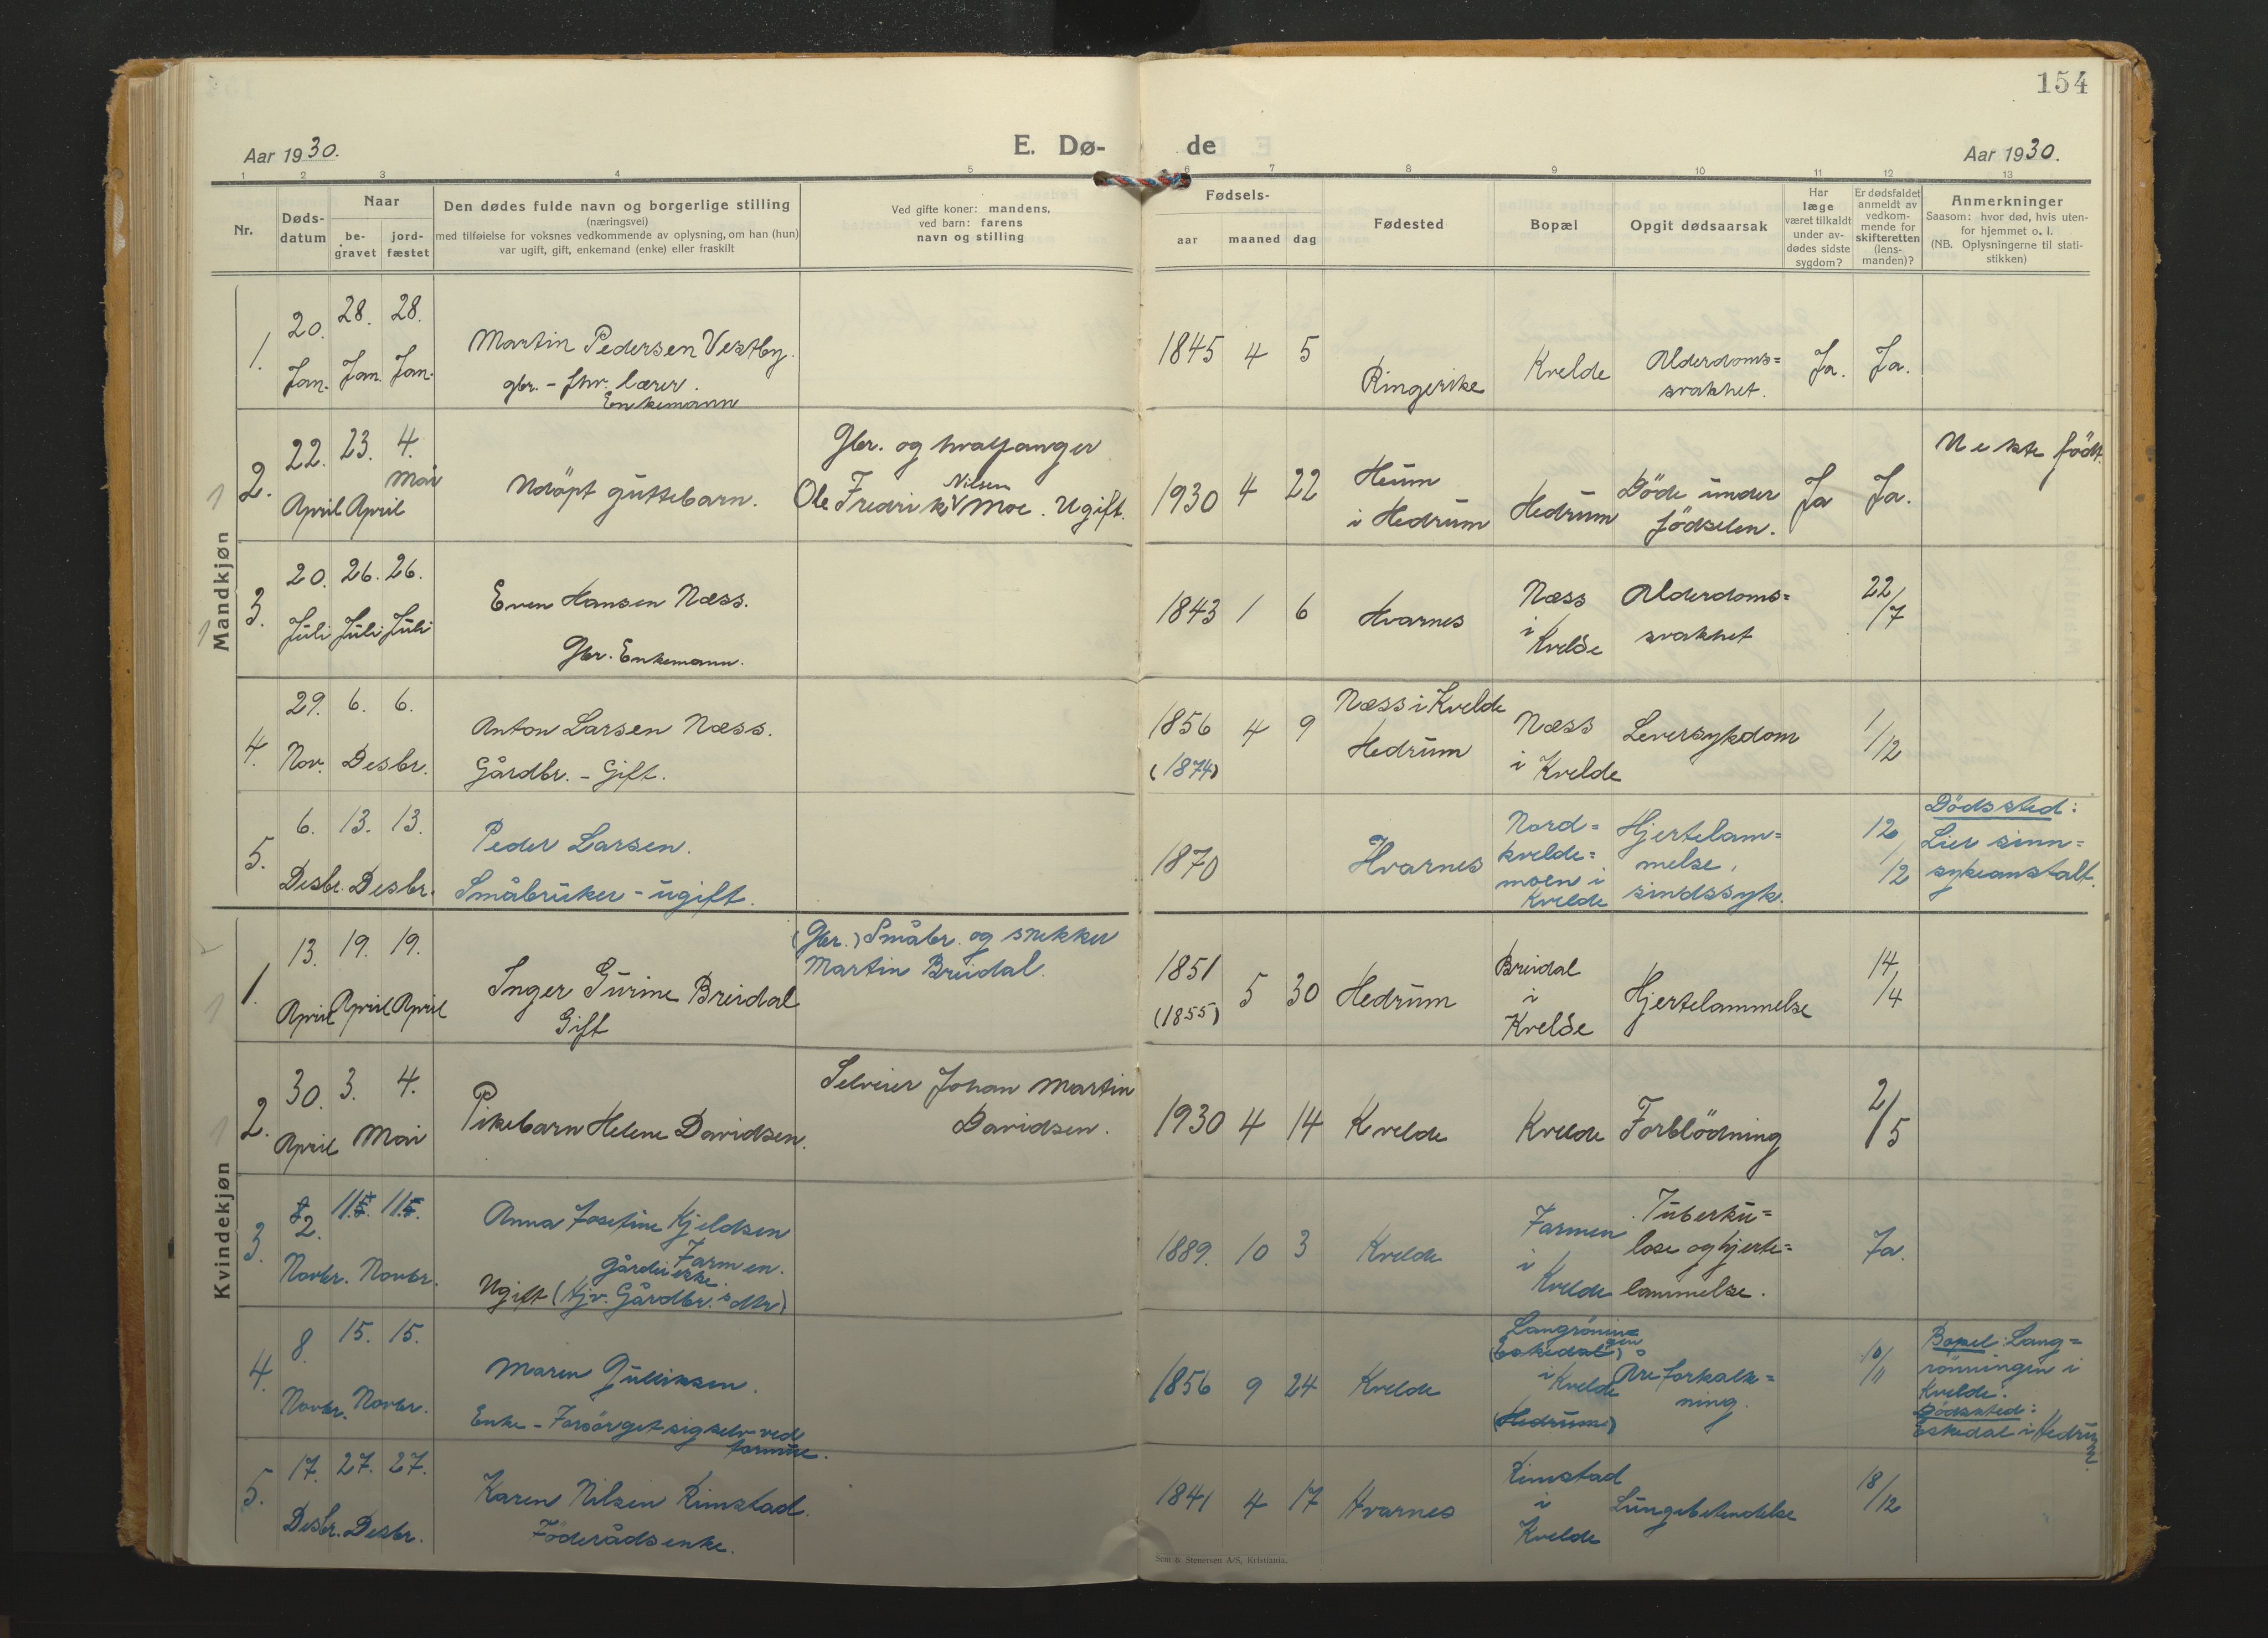 154
Aar 1930.
E. Dø-
de
Aar 1930.
1 2 3 4 5 6 7 8 9 10 11 12 13
Nr.
Døds-
datum
Naar
be-
gravet
jord-
fæstet
Den dødes fulde navn og borgerlige stilling
(næringsvei)
med tilføielse for voksnes vedkommende av oplysning, om han (hun)
var ugift, gift, enkemand (enke) eller fraskilt
Ved gifte koner: mandens,
ved barn: farens
navn og stilling
Fødsels-
aar maaned dag
Fødested
Bopæl
Opgit dødsaarsak
Har
læge
været tilkaldt
under av-
dødes sidste
sygdom?
Er dødsfaldet
anmeldt av
vedkom-
mende for
skifteretten
(lens-
manden)?
Anmerkninger
Saasom: hvor død, hvis uten-
for hjemmet o. l.
(NB. Oplysningerne til stati-
stikken)
Mandkjøn
1.
20. 28. 28.
Jan. Jan. Jan.
Martin Pedersen Vestby.
gbr. - fhv. lærer.
Enkemann
1845 4 5
Ringerike
Kvelde
Alderdoms=
svakhet.
Ja. Ja.
1
2.
22. 23. 4.
Mai
April April
Udöpt guttebarn.
Gbr. og hvalfanger
Nilsen
Ole Fredrik Moe. Ugift.
1930 4 22
Heum
i Hedrum
Hedrum
Döde under
födselen.
Ja Ja.
Nekte födt.
1
3.
20. 26. 26.
Juli Juli Juli
Even Hansen Næss.
Gbr. Enkemann.
1843 1 6
Hvarnes
Næss
i
Kvelde
Alderdoms=
svakhet
22/7
4.
29. 6. 6.
Nov. Desbr.
Anton Larsen Næss.
Gårdbr. - Gift.
1856 4 9
(1874)
Næss i Kvelde
Hedrum
Næss
i Kvelde
Leversykdom
1/12
5.
6. 13. 13.
Desbr. Desbr.
Peder Larsen.
Småbruker - ugift.
1870
Hvarnes
Nord=
kvelde=
moen i
Kvelde
Hjertelam=
melse,
sindssyk.
12/12
Dödssted:
Lier sinn=
sykeanstalt.
Kvindekjøn
1
1.
13. 19. 19.
April April April
Inger Gurine Breidal
Gift
(Gbr.) Småbr. og snekker
Martin Breidal.
1851 5 30
(1855)
Hedrum
Breidal
i
Kvelde
Hjertelammelse
14/4
1
2.
30. 3. 4.
April Mai
Pikebarn Helene Davidsen.
Selveier Johan Martin
Davidsen.
1930 4 14
Kvelde
Kvelde
Forblödning
2/5
3.
2. 11. 11.
Novbr. Novbr.
Anna Josefine Kjeldsen
Farmen.
Gårdeierske.
Ugift (Hjv. Gårdbr.s dtr)
1889. 10 3
Kvelde
Farmen
i
Kvelde
Tuberku=
lose og hjerte=
lammelse.
Ja.
4.
8. 15. 15.
Novbr. Novbr.
Maren Gulliksen.
Enke - Forsörget sig selv ved
formue.
1856 9 24
Kvelde
Langrönin=
gen
(Eskedal)
i Kvelde
(Hedrum)
Åreforkalk=
ning.
10/11
Bopel: Lang=
rönningen i
Kvelde.
Dödssted:
Eskedal i Hedrum.
5.
17. 27. 27.
Desbr. Desbr.
Karen Nilsen Rimstad.
Föderådsenke.
1841 4 17
Hvarnes
Rimstad
i
Kvelde
Lungebetendelse
18/12
Sem & Stenersen A/S, Kristiania.